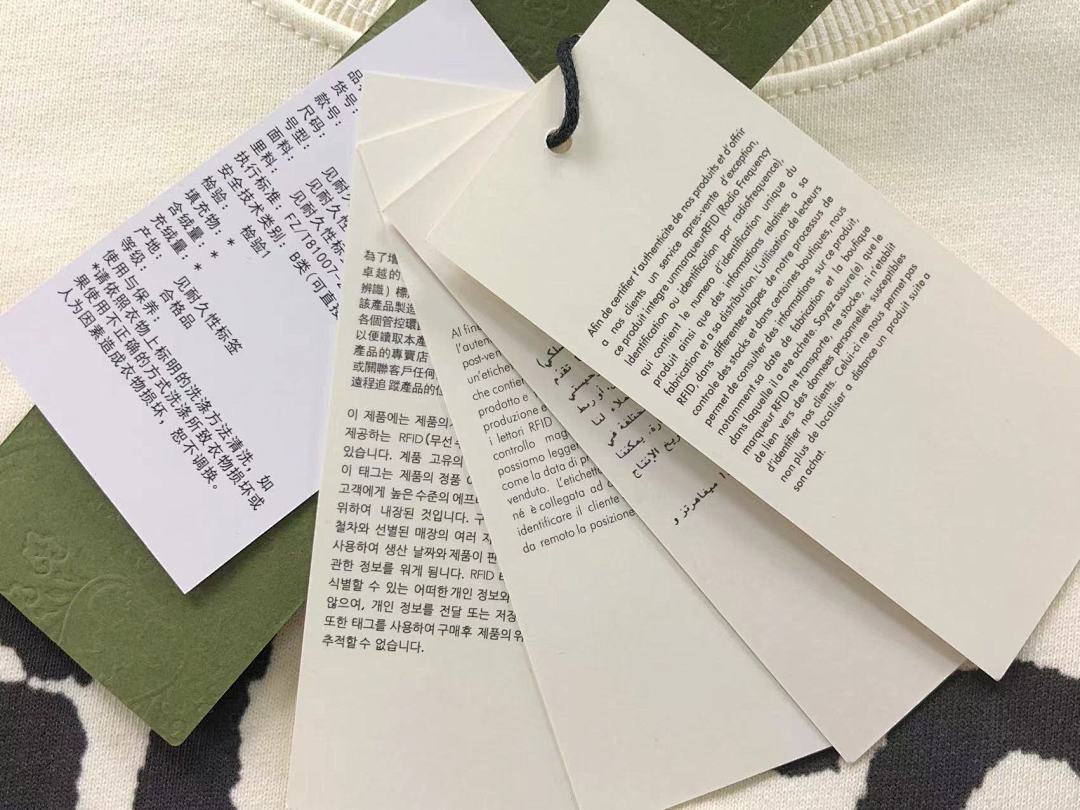 品
货号：
款号：
尺码：
号型：
面料：
里料： 见耐久
执行标准： FZ/T81007-
安全技术类别： B类(可直
检验： 检验1
填充物： *
含绒量： *
充绒量： *
产地： 见耐久性标签
等级： 合格品
使用与保养：
*请依照衣物上标明的洗涤方法清洗，如
果使用不正确的方式洗涤所致衣物损坏或
人为因素造成衣物损坏，恕不调换。
為了增
卓越的
辨識）標
該產品製造
各個管控環
以便讀取本產
產品的專賣店
或關聯客戶任何
遠程追蹤產品的位
이 제품에는 제품의
제공하는 RFID(무선
있습니다. 계품 고유의
이 태그는 제품의 정품
고객에게 높은수준의 에프
위하여 내장된 것입니다. 구
철차와 선별된 매장의 여러 지
사용하여 생산 날짜와제품이 판
관한 정보를 워게 됨니다. RFID
식별할 수 있는 어떠한개인 정보와
않으여, 개인 정보를 전달 또는 저장
또한 태그를 사용하여구매후 제품의위
추적할수 없습니다.
Al fine
l'auten
post-ven
un'etiche
che contien
prodotto e
produzione e
i lettori RFID
controllo mag
possiamo legger
come la data di pr
venduto. L'etichetta
né è collegata ad
identificare il cliente
da remoto la posizione
Afin de certifier l'authenticite de nos produits et d'offrir
a nos clients un service apres-vente d'exception,
ce produit integre unmarqueurRFID (Radio Frequency
Identification ou identification par radiofrequence),
qui contient le numero d'identification unique du
produit ainsi que des informations relatives a sa
fabrication et a sa distribution. L'utilisation de lecteurs
RFID, dans differentes etapes de notre processus de
controle des stocks et dans certaines boutiques, nous
permet de consulter des informations sur ce produit,
notamment sa date de fabrication et la boutique
dans laquelle il a ete achete. Soyez assure(e) que le
marqueur RFID ne transporte, ne stocke, ni n'etablit
de lien vers des donnees personnelles susceptibles
d'identifier nos clients. Celui-ci ne nous permet pas
non plus de localiser a distance un produit suite a
son achat.